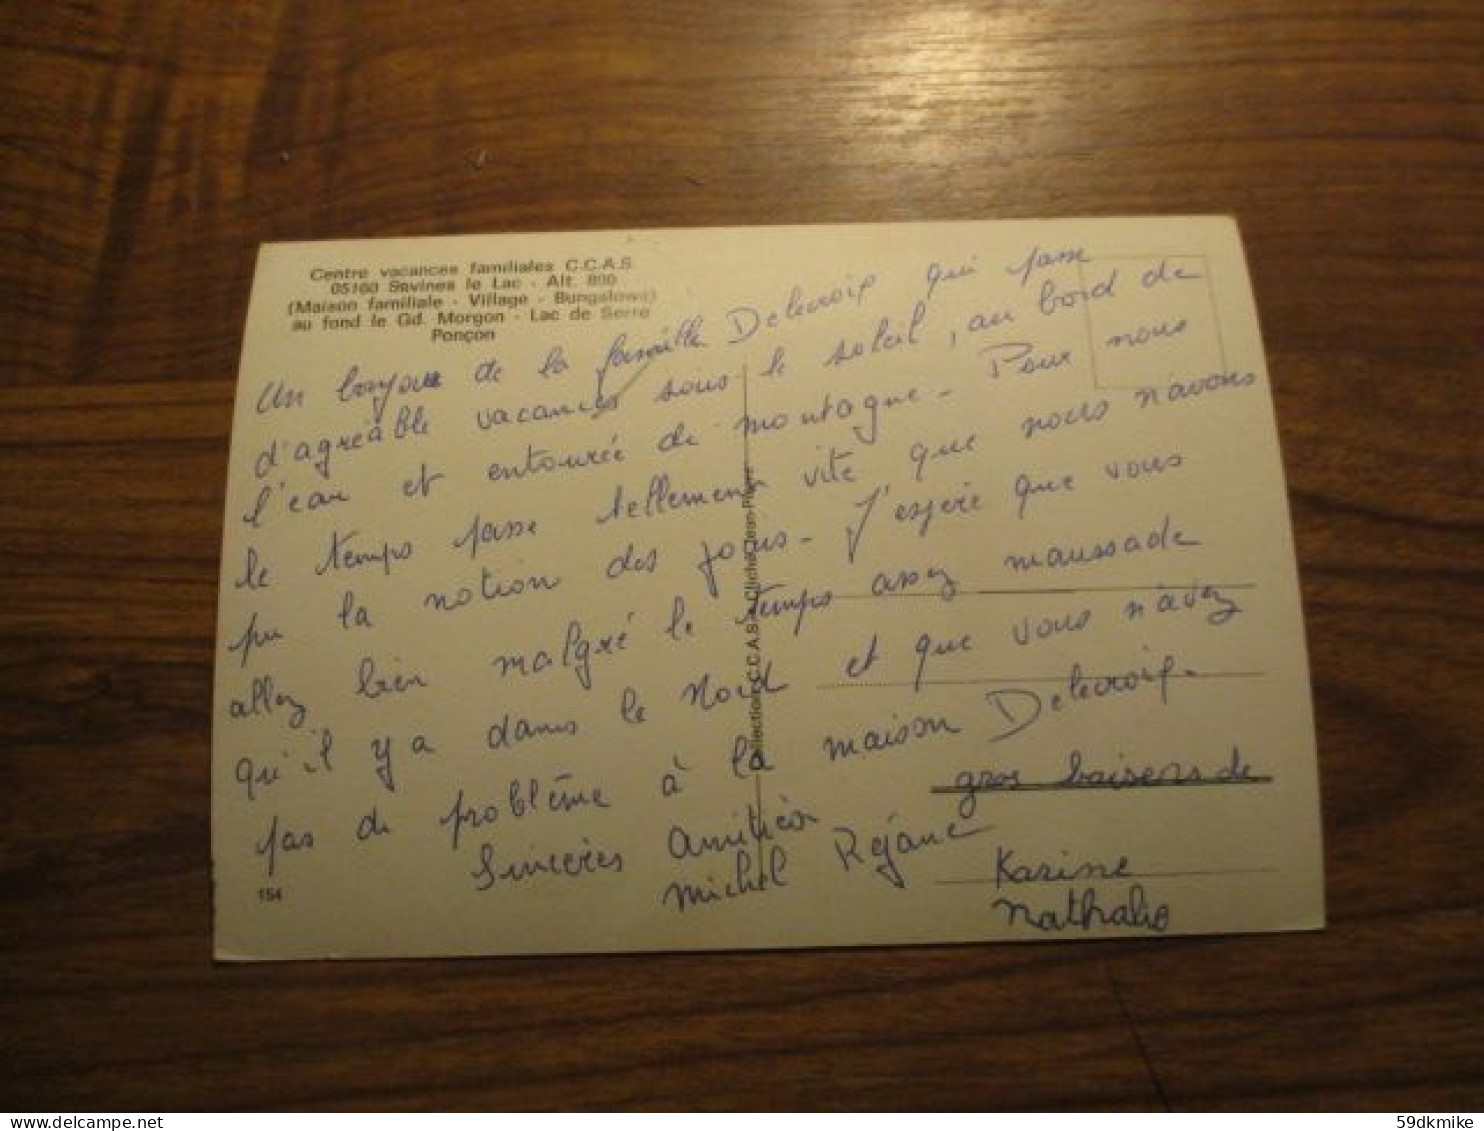 Centre vacances familiales C.C.A.S
05160 Savines le Lac - Alt. 800
(Maison familiale - Village - Bungalows)
au fond le Gd. Morgon - Lac de Serre
Ponçon
Un bonjour de la famille Delecroix qui passe
d'agréable vacances sous le soleil, au bord de
l'eau et entourée de montagne - Pour nous
le temps passe tellement vite que nous n'avons
pu la notion des jours - J'espère que vous
allez bien malgré le temps assez maussade
qu'il y a dans le Nord et que vous n'avez
pas de problème à la maison Delecroix -
gros baisers de
Sincères Amitiés
Michel Réjane
Karine
Nathalie
Collection C.C.A.S - Cliché Jean-Pierre
154
59dkmike